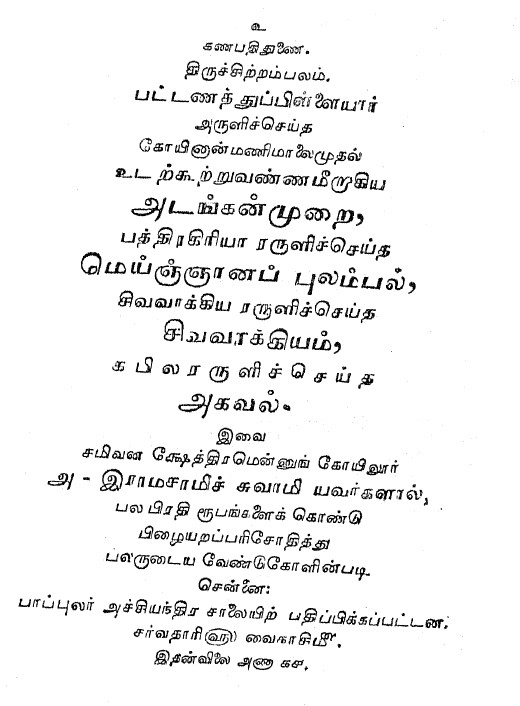 உ
கணபதிதுணை.
திருச்சிற்றம்பலம்.
பட்டணத்துப்பிள்ளையார்
அருளிச்செய்த
கோயினான்மணிமாலைமுதல்
உடற்கூற்றுவண்ணமீறாகிய
அடங்கன்முறை,
பத்திரகிரியா ரருளிச்செய்த
மெய்ஞ்ஞானப் புலம்பல்,
சிவவாக்கிய ரருளிச்செய்த
சிவவாக்கியம்,
கபிலரருளிச்செய்த
அகவல்.
இவை
சபிவன க்ஷேத்திரமென்னுங் கோயிலூர்
அ - இராமசாமிச் சுவாமி யவர்களால்,
பல பிரதி ரூபங்களைக் கொண்டு
பிழையறப்பரிசோதித்து
பலருடைய வேண்டுகோளின்படி
சென்னை:
பாப்புலர் அச்சியந்திர சாலையிற் பதிப்பிக்கப்பட்டன.
சர்வதாரி௵ வைகாசி௴.
இதன்விலை அணா கச.